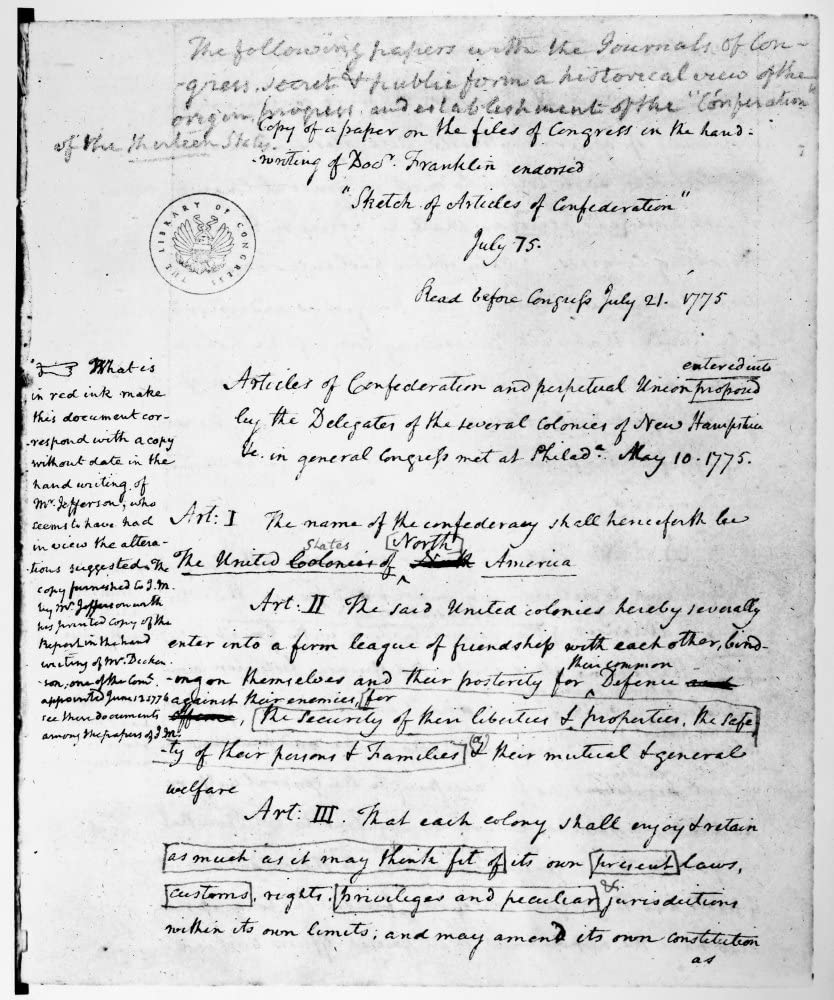 The following papers with the Journals of Con-
-gress, secret & public form a historical view of the
origin, progress and establishment of the "Conferation"
of the thirteen States.
Copy of a paper on the files of Congress in the hand-
-writing of Docr. Franklin endorsed
"Sketch of Articles of Confederation"
July 75.
Read before Congress July 21. 1775
THE LIBRARY OF CONGRESS
What is
in red ink make
this document cor-
-respond with a copy
without date in the
hand writing of
Mr. Jefferson, who
seems to have had
in view the altera-
tions suggested. The
copy furnished to J.M.
by Mr. Jefferson with
his printed copy of the
Report in the hand
writing of Mr. Dicken
-son, one of the Come.
appointed June 12. 1776
see these documents
among the papers of J.M.
entered into
Articles of Confederation and perpetual Union proposed
by the Delegates of the several Colonies of New Hampshire
&c. in general Congress met at Philada. May 10. 1775.
Art: I The name of the confederacy shall henceforth be
States North
The United Colonies of America
Art: II The said United colonies hereby severally
enter into a firm league of friendship with each other, bind-
their common
-ing on themselves and their posterity for Defence and
against their enemies, for
offence, the security of their liberties & properties, the safe
-ty of their persons & Families & their mutual & general
welfare
Art: III. That each colony shall enjoy & retain
as much as it may think fit of its own present laws,
&
customs, rights, privileges and peculiar jurisdictions
within its own limits; and may amend its own constitution
as